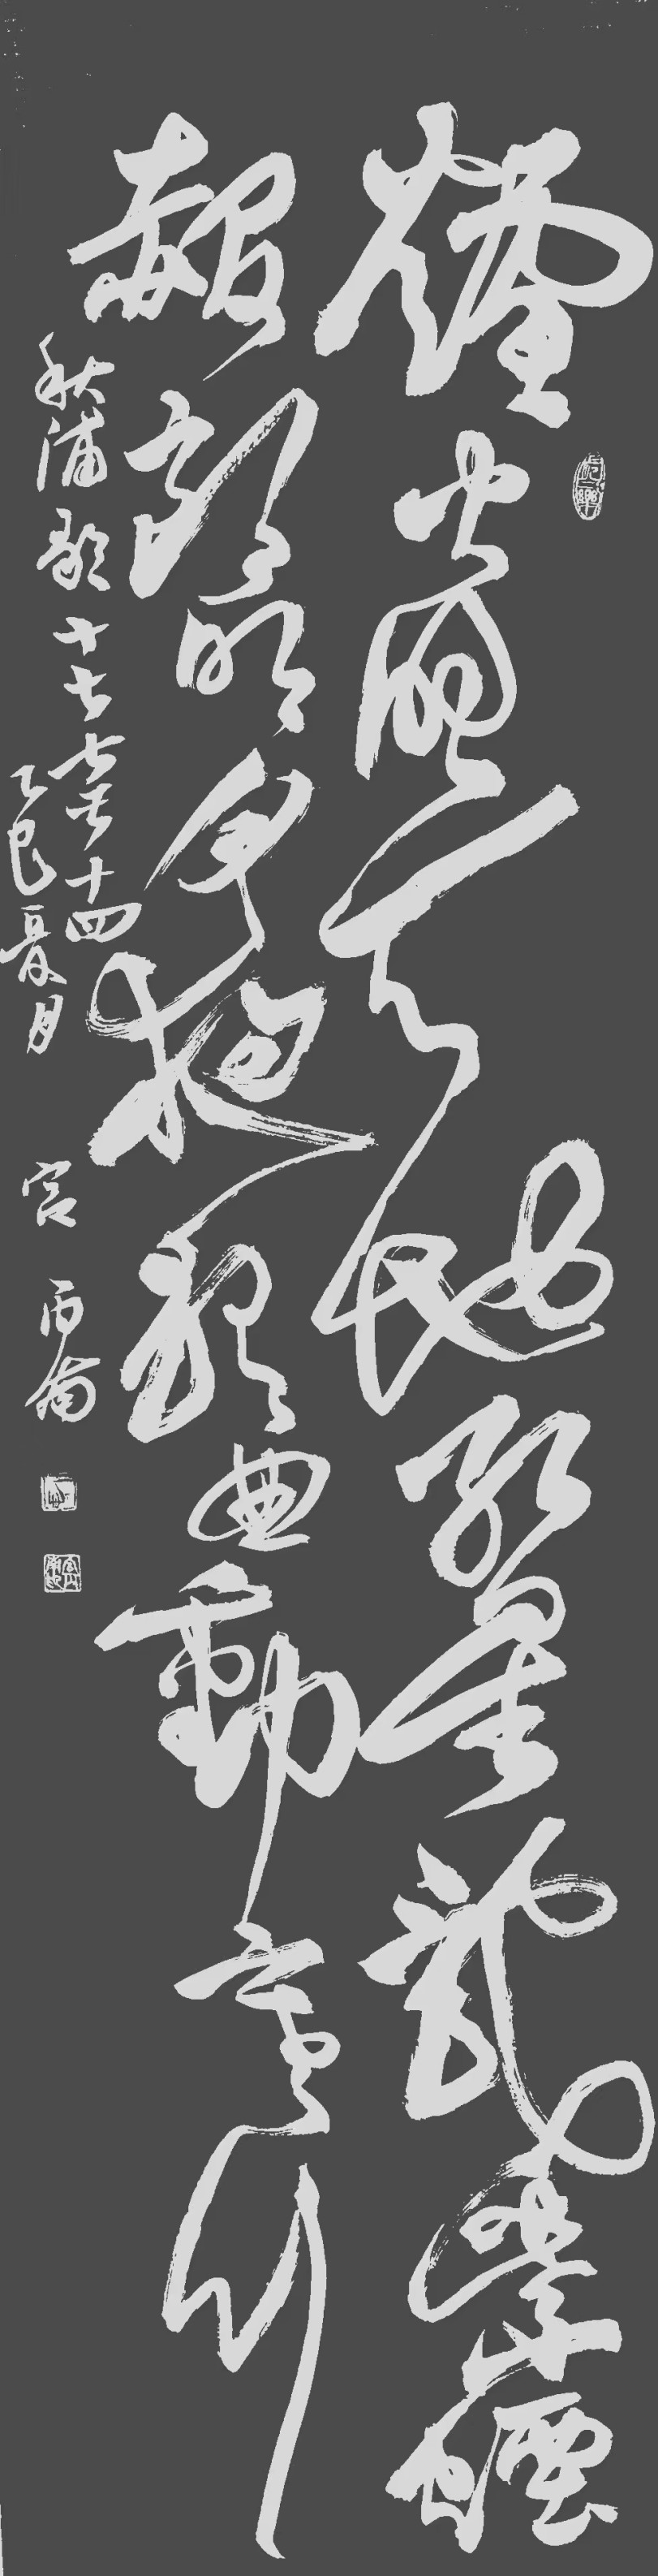 爐火照天地紅星亂紫煙
赧郎明月夜歌曲動寒川
秋浦歌十七首十四
乙巳夏月 宫